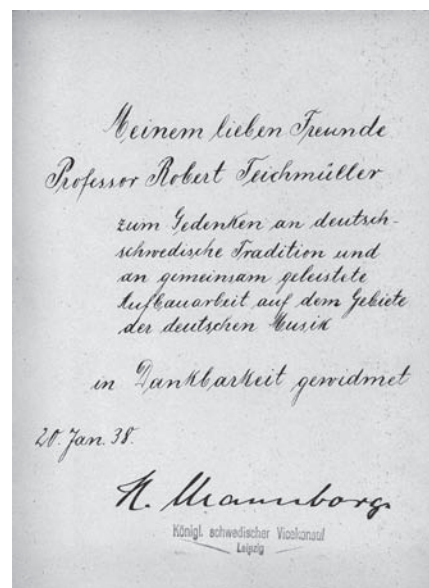 Meinem lieben Freunde
Professor Robert Teichmüller
zum Gedenken an deutsch-
schwedische Tradition und
an gemeinsam geleistete
Aufbauarbeit auf dem Gebiete
der deutschen Musik
in Dankbarkeit gewidmet
20. Jan. 38.
K. Mannborg.
Königl. schwedischer Vicekonsul
Leipzig